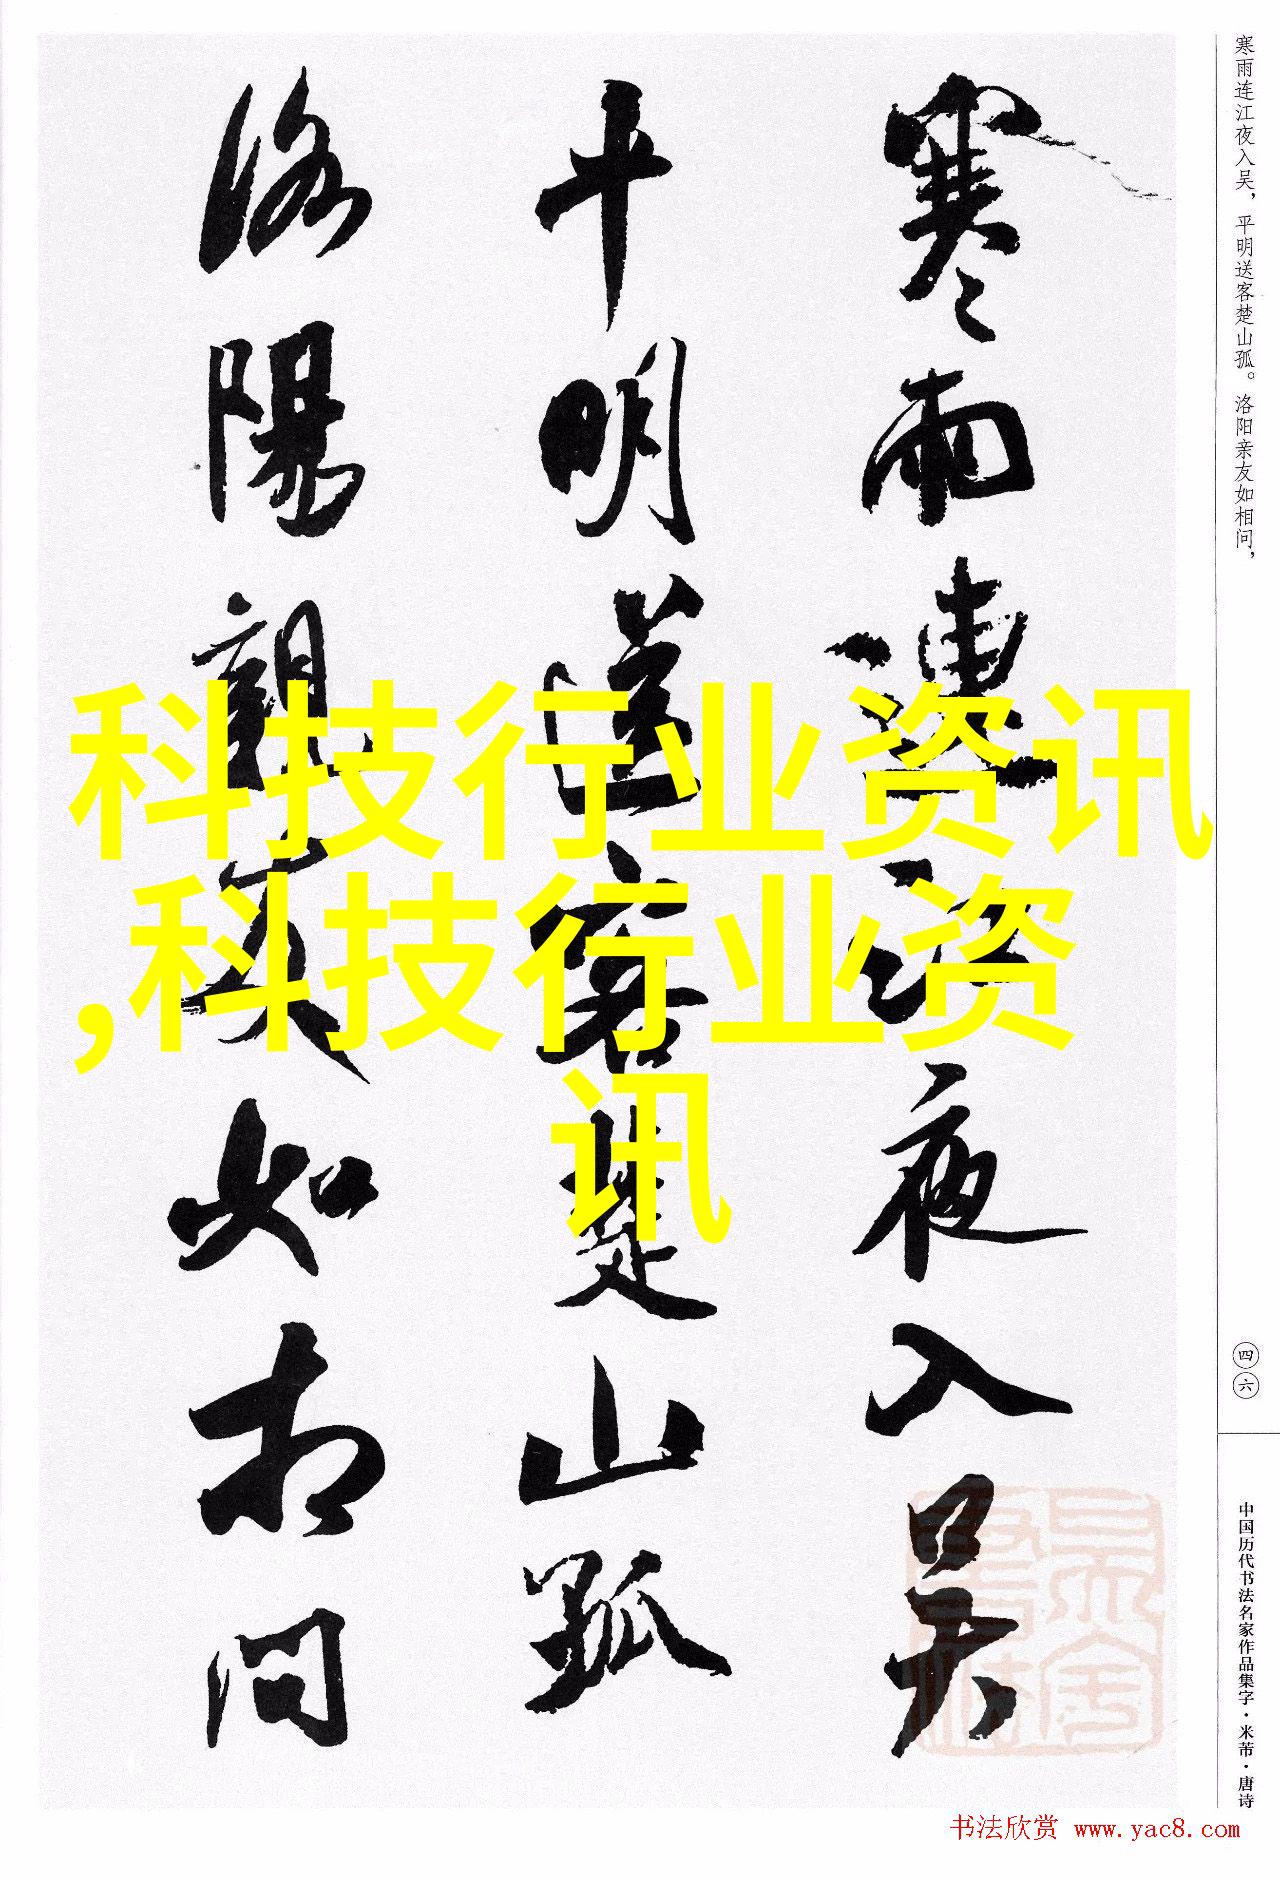 寒雨连江夜入吴，平明送客楚山孤。洛阳亲友如相问，
寒雨連江夜入吴
平明送客楚山孤
洛陽親友如相問
科技行业资讯
,科技行业资
讯
四六
中国历代书法名家作品集字·米芾·唐诗
书法欣赏 www.yac8.com